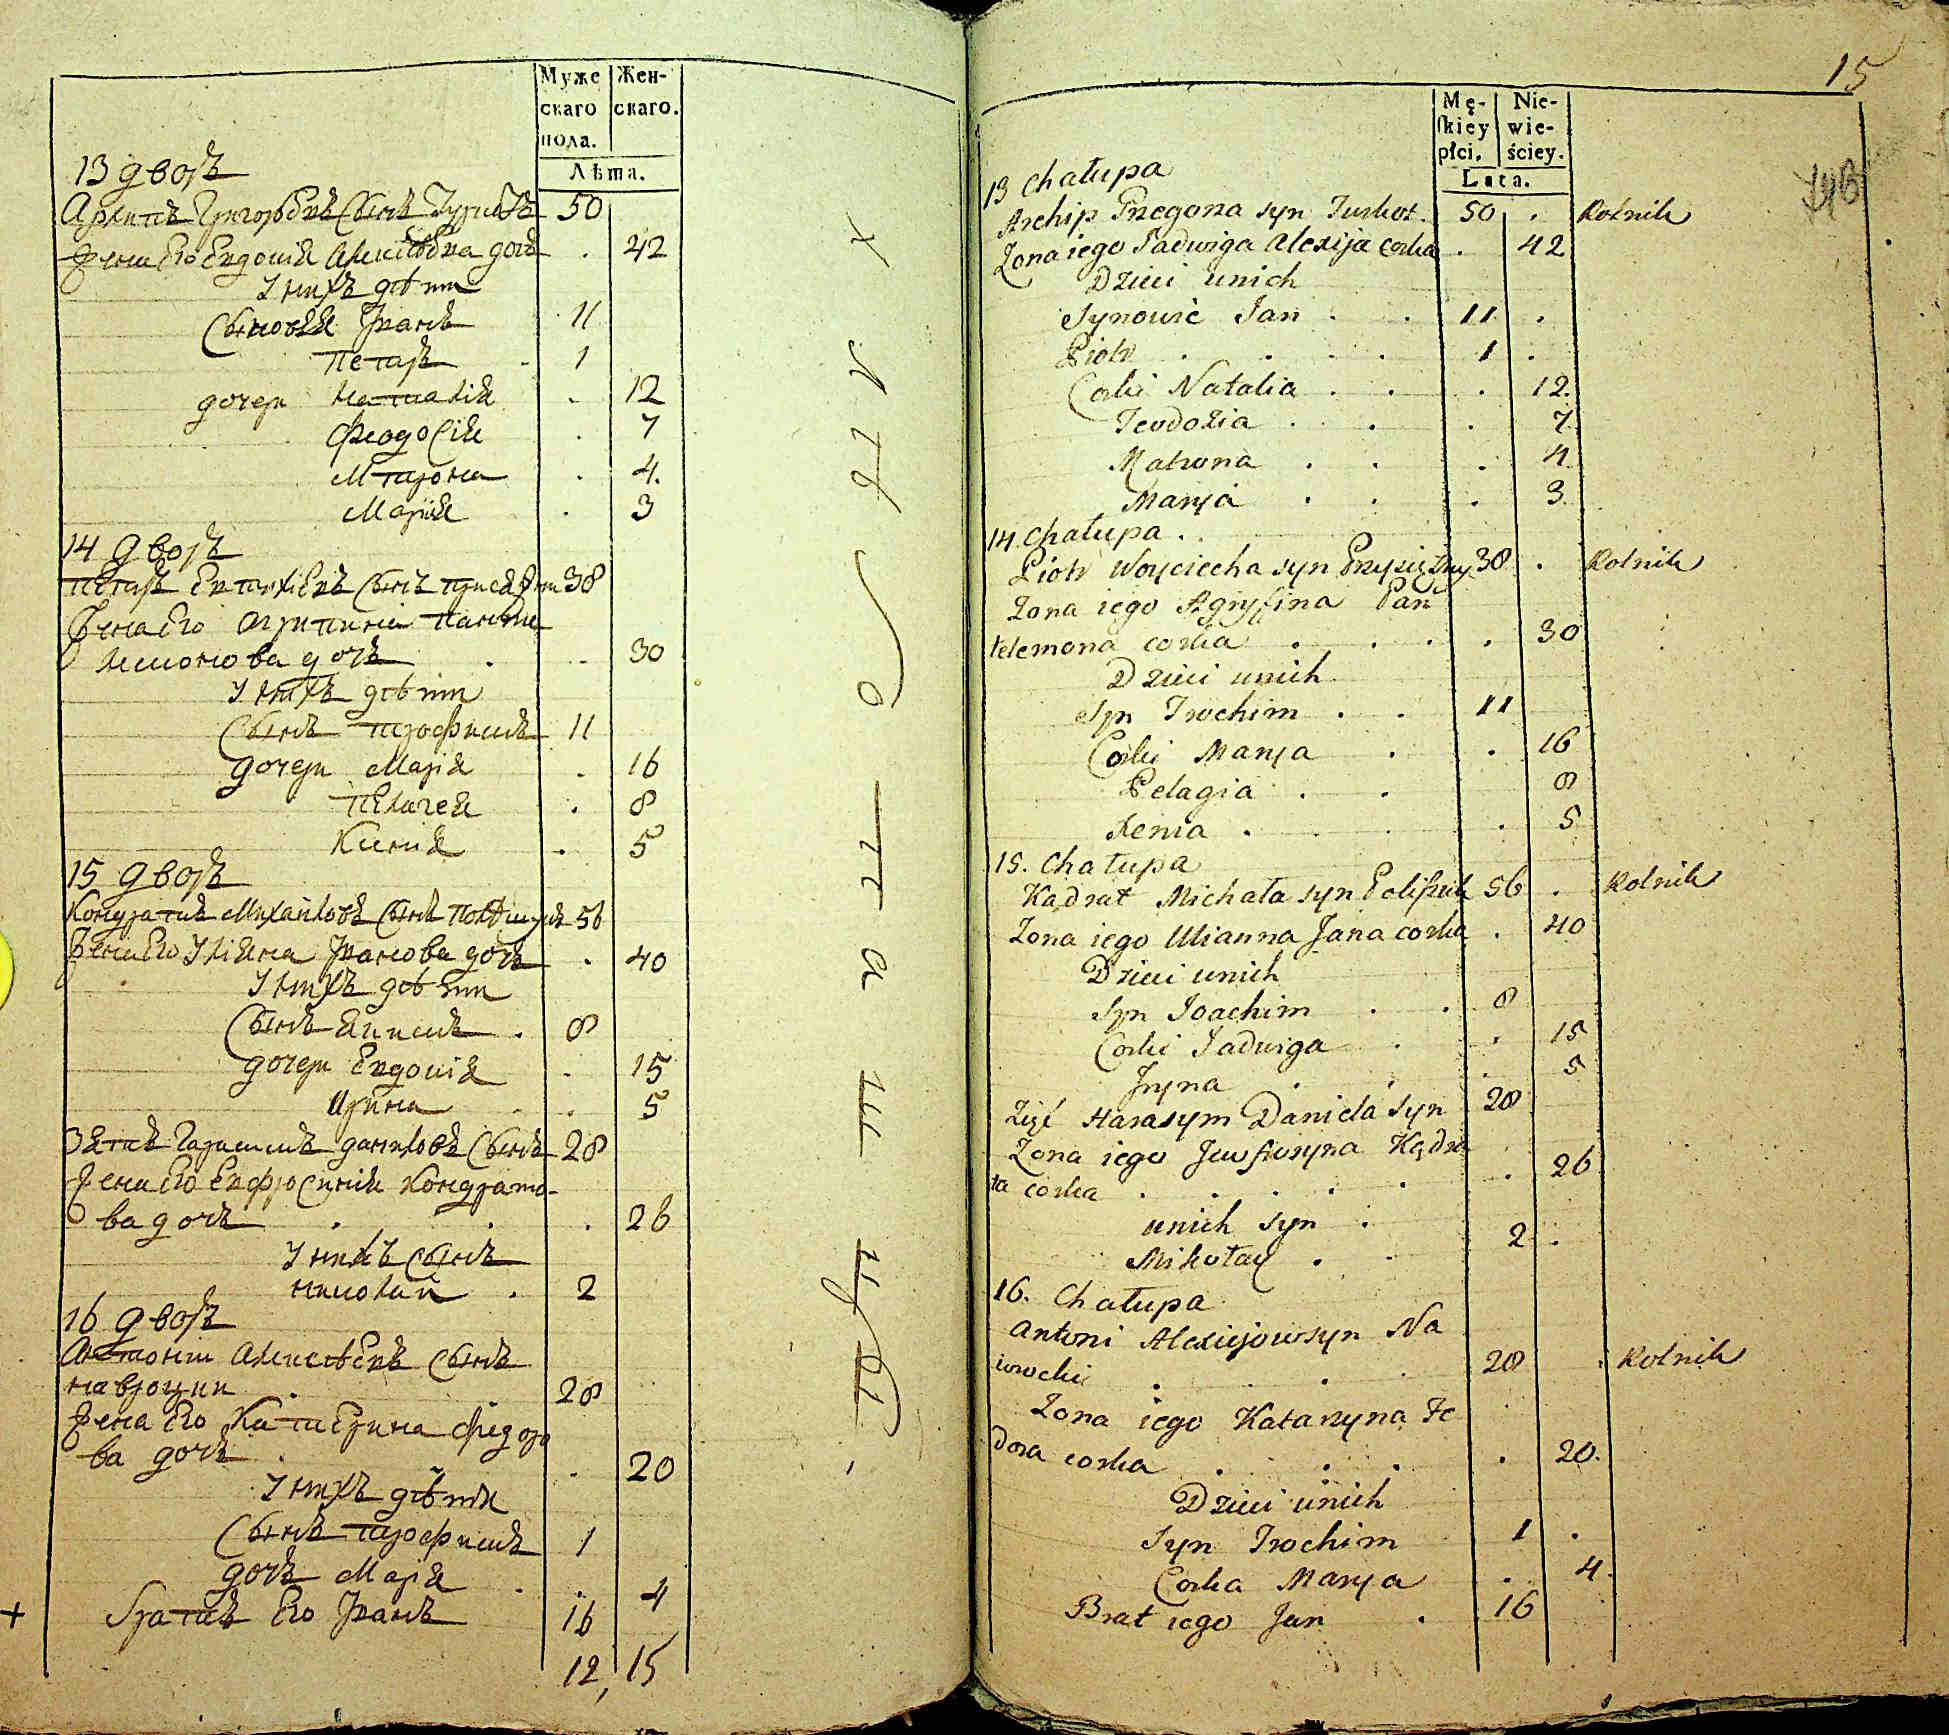 Муже
скаго
пола.
Жен-
скаго.
Лѣта.
13 дворъ
Архипъ Григорьевъ Сынъ 50
жена Его Евдокія Алексѣевна дочь . 42
У нихъ дѣти
Сыновья Иванъ 11
Петръ . 1
дочери Наталія . 12
Феодосія . 7
Матрона . 4.
Марія . 3
14 дворъ
Петръ Сынъ 38
Жена Его Агрипина Панте
лимонова дочь . . 30
У нихъ дѣти
Сынъ Трофимъ 11
дочери Марія . 16
Пелагея . 8
Ксенія . 5
15 дворъ
Кондратъ Михайловъ Сынъ 56
Жена Его Уліяна Иванова дочь . 40
У нихъ дѣти
Сынъ Якимъ . 8
дочери Евдокія . 15
Ирина . . 5
Зять Герасимъ Даниловъ Сынъ 28
Жена Его Ефросинія Кондрато-
ва дочь . . . 26
У нихъ Сынъ
Николай . 2
16 дворъ
Антоній Алексѣевъ Сынъ
Навроцки . 28
Жена Его Катерина Федоро
ва дочь . . 20
У нихъ дѣти
Сынъ Трофимъ 1
дочь Марія . . 4
+ Братъ Его Иванъ 16
12, 15
15
Mę-
ſkiey
płci.
Nie-
wie-
ściey.
Lata.
13 Chałupa
Archip Gregora syn 50 . Rolnik
Zona iego Jadwiga Alexija corka . 42
Dzieci unich
Synowie Jan . . 11 .
Piotr . . . . 1 .
Corki Natalia . . . 12.
Teodozia . . . 7
Matrona . . . 4
Marya . . . 3
14 Chałupa .
Piotr Woyciecha syn 38 . Rolnik
Zona iego Agryfina Pan
telemona corka . . . . 30
Dzieci unich
Syn Trochim . . 11
Corki Marya . . 16
Pelagia . . 8
Xenia . . . 5
15. Chałupa
Kądrat Michała syn 56 . Rolnik
Zona iego Ulianna Jana corka . 40
Dzieci unich
Syn Joachim . . 8
Corki Jadwiga . . 15
Jryna . . . 5
Zięć Harasym Daniela syn 28
Zona iego Jewfrozyna Kądra
ta corka . . . . . . 26
unich syn .
Mikołay . . 2 .
16. Chałupa
Antoni Alexiejow syn Na
wrocki . . . 28 . Rolnik
Zona iego Katarzyna Fe
dora corka . . . . 20.
Dzieci unich
Syn Trochim 1 .
Corka Marya . 4
Brat iego Jan . 16